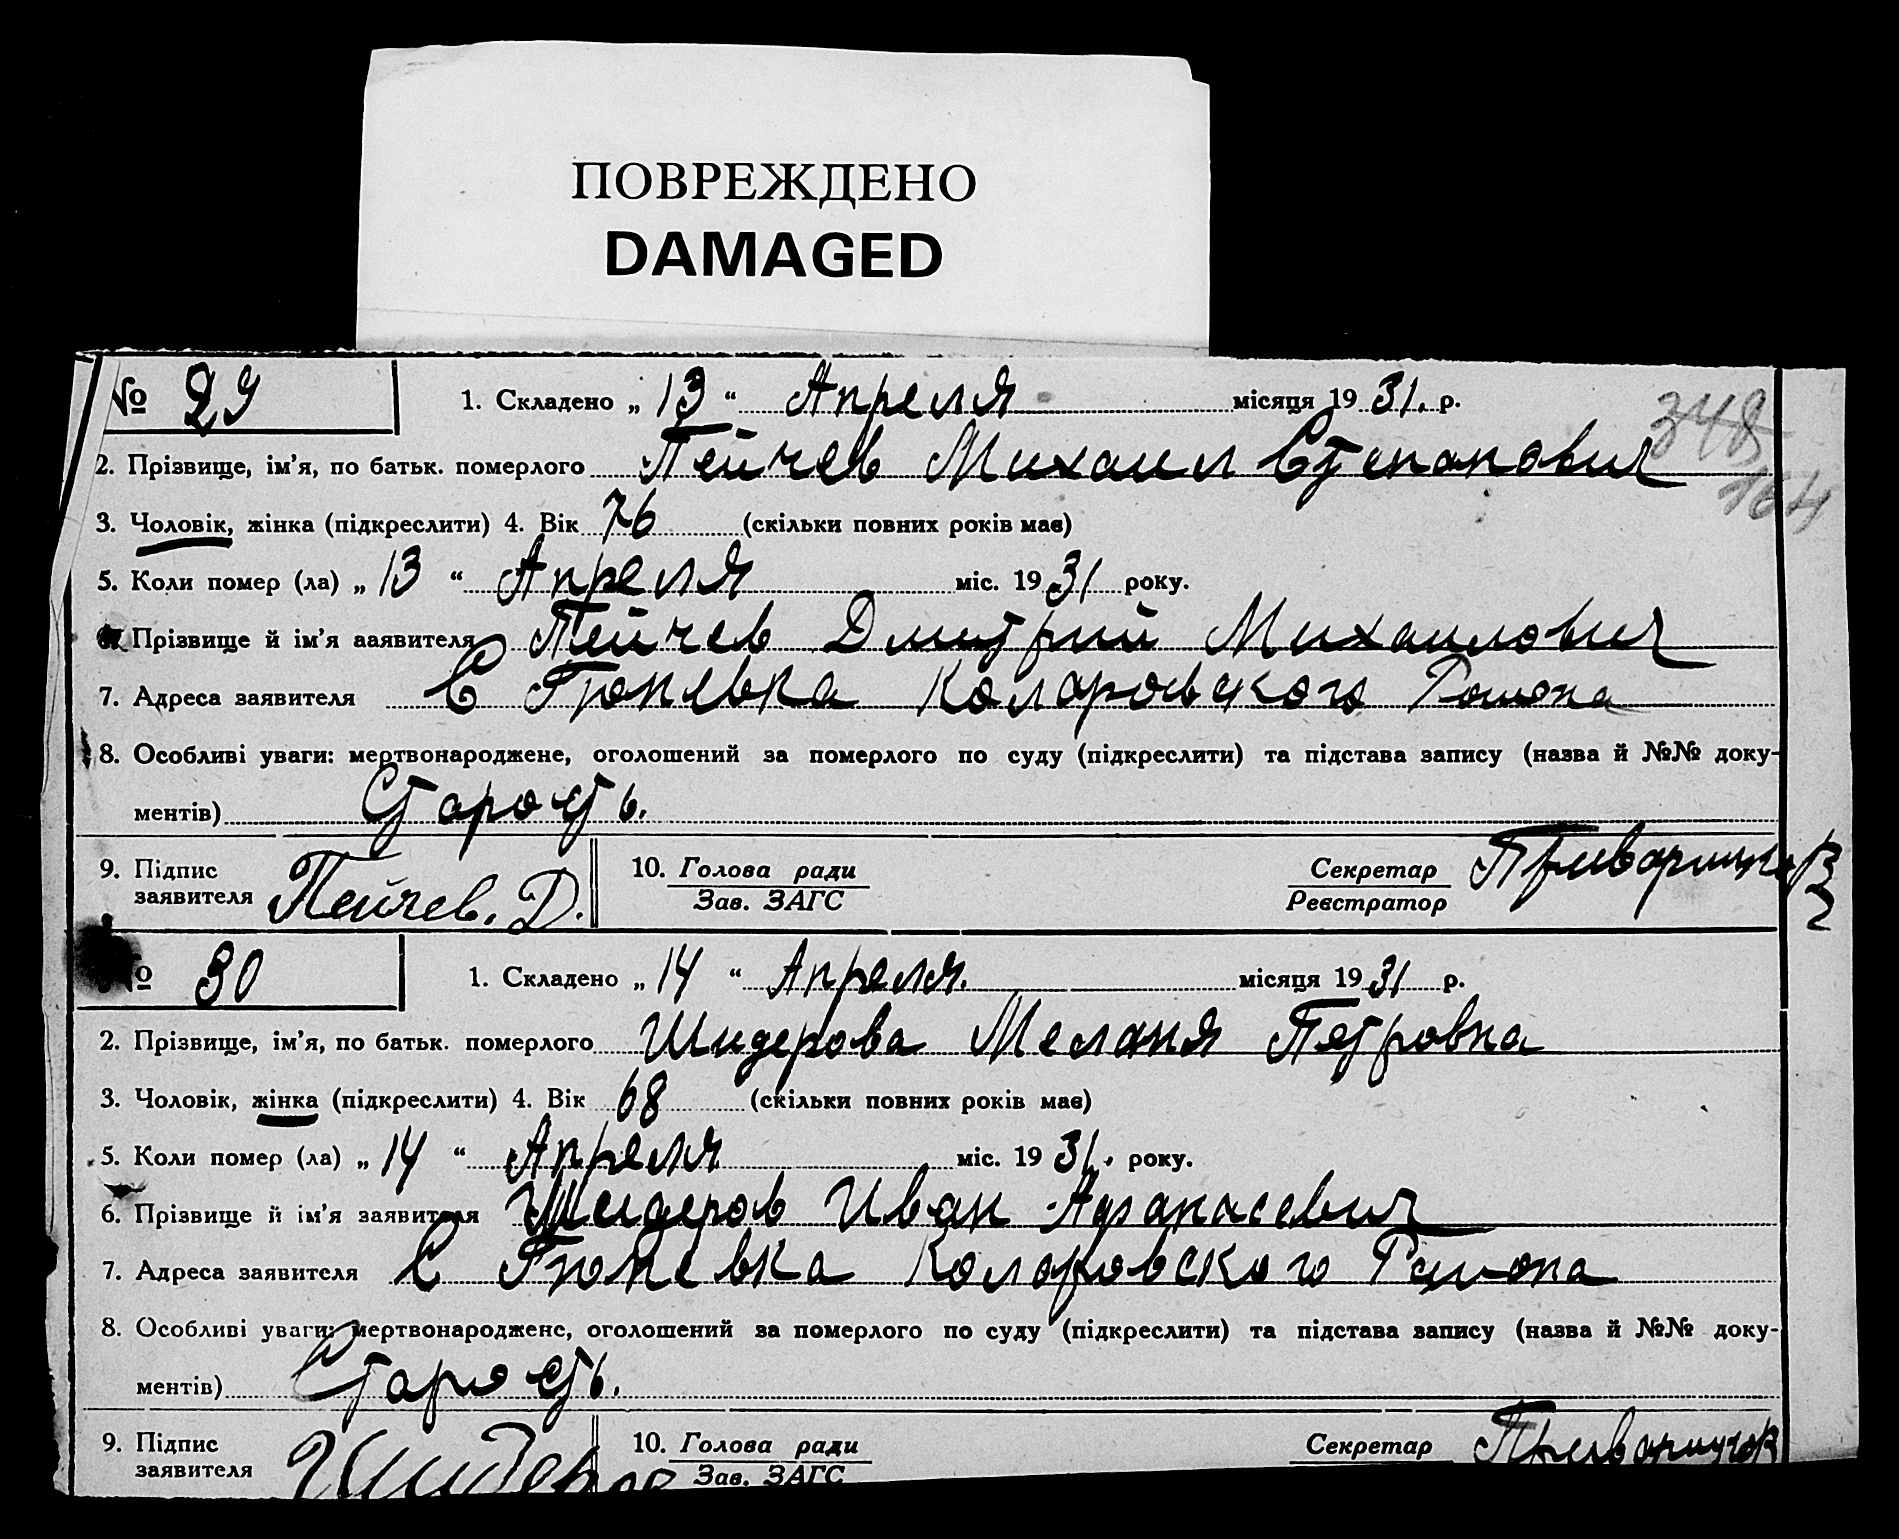 ПОВРЕЖДЕНО
DAMAGED
№ 29
1. Складено „ 13 “ Апреля місяця 1931. р.
348
2. Прізвище, ім’я, по батьк. померлого Пейчев Михаил Степанович
164
3. Чоловік, жінка (підкреслити) 4. Вік 76 (скільки повних років має)
5. Коли помер (ла) „ 13 “ Апреля міс. 1931 року.
Прізвище й ім’я заявителя Пейчев Дмитрий Михаилович
7. Адреса заявителя С Грюневка Коларовского Района
8. Особливі уваги: мертвонароджене, оголошений за померлого по суду (підкреслити) та підстава запису (назва й №№ доку-
ментів) Старость.
9. Підпис заявителя Пейчев. Д. 10. Голова ради Секретар
Зав. ЗАГС Реєстратор
№ 30
1. Складено „ 14 “ Апреля. місяця 1931 р.
2. Прізвище, ім’я, по батьк. померлого Шидерова Меланя Петровна
3. Чоловік, жінка (підкреслити) 4. Вік 68 (скільки повних років має)
5. Коли помер (ла) „ 14 “ Апреля міс. 1931. року.
6. Прізвище й ім’я заявителя Шидеров Иван Афанасевич
7. Адреса заявителя С Грюневка Коларовского Района
8. Особливі уваги: мертвонароджене, оголошений за померлого по суду (підкреслити) та підстава запису (назва й №№ доку-
ментів) Старость.
9. Підпис заявителя Шидеров 10. Голова ради Секретар
Зав. ЗАГС